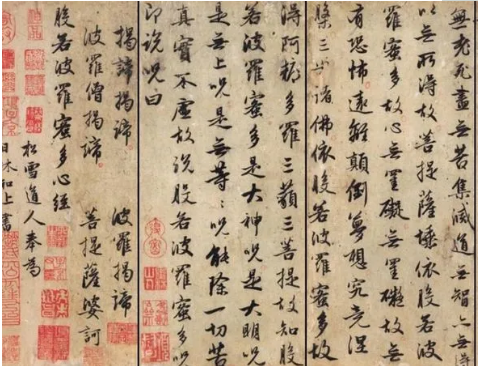 無老死盡無苦集滅道無智亦無得
以無所得故菩提薩埵依般若波
羅蜜多故心無罣礙無罣礙故無
有恐怖遠離顛倒夢想究竟涅
槃三世諸佛依般若波羅蜜多故
得阿耨多羅三藐三菩提故知般
若波羅蜜多是大神呪是大明呪
是無上呪是無等〻呪能除一切苦
真實不虛故說般若波羅蜜多呪
即說呪曰
揭諦揭諦 波羅揭諦
波羅僧揭諦 菩提薩婆訶
般若波羅蜜多心經
松雪道人奉為
日林和上書